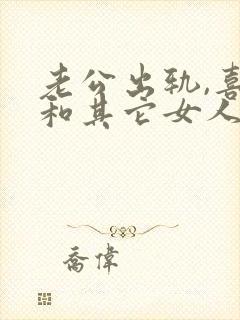 老公出轨,喜
和其它女人
乔伟